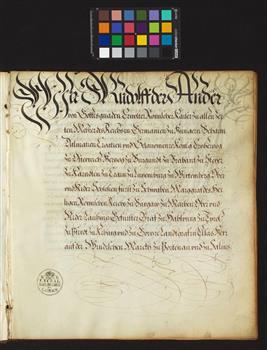 Wir Rudolff der Ander
von Gottes gnaden Erwelter Römischer Kaiser zu allen Zei-
ten Mehrer des Reichs in Germanien zu Hungern Behaim
Dalmatien Croatien und Sclavonien &c. König Ertzhertzog
zu Österreich Hertzog zu Burgundi zu Brabant zu Steyr
zu Kärndten zu Crain zu Lutzemburg zu Wirtemberg Ober
und Nider Schlesien Fürst zu Schwaben Marggraf des Hei-
ligen Römischen Reichs zu Burgaw zu Märhern Ober und
Nider Laußnitz Gefürster Graf zu Habspurg zu Tyrol
zu Pfirdt zu Kiburg und zu Görtz &c. Landtgraf in Elsas Herr
auf der Windischen March zu Portenau und zu Salins